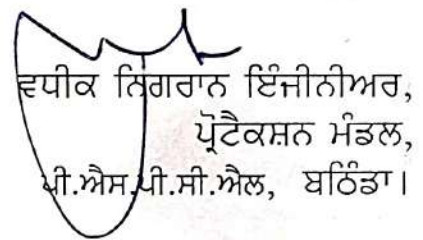 ਵਧੀਕ ਨਿਗਰਾਨ ਇੰਜੀਨੀਅਰ,
ਪ੍ਰੋਟੈਕਸ਼ਨ ਮੰਡਲ,
ਪੀ.ਐਸ.ਪੀ.ਸੀ.ਐਲ, ਬਠਿੰਡਾ।